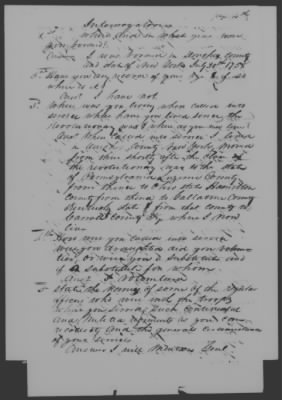 Interrogatories
Where and in what year were
you born?
Ans I was born in County
and State of New York July 20th 1758
2nd Have you any record of your age & if so
where is it
Ans I have not
3rd Where was you living when called into
service where have you lived since the
revolutionary war & where do you now live
Ans When called into service I lived
in County New York moved
from their shortly after the close of
the revolutionary war to the State
of Pennsylvania County
from thence to Ohio State Hamilton
County from thence to Gallatin County
Kentucky State & from that County to
Carroll County Ky where I now
live
4th How were you called into service
were you drafted did you volun
teer or were you a substitute and if
a substitute for whom
Ans A Volunteer
5 State the names of some of the regular
officers who were with the troops
where you served such continental
and militia regiments as you can
recollect and the general circumstances
of your service
Answer I will